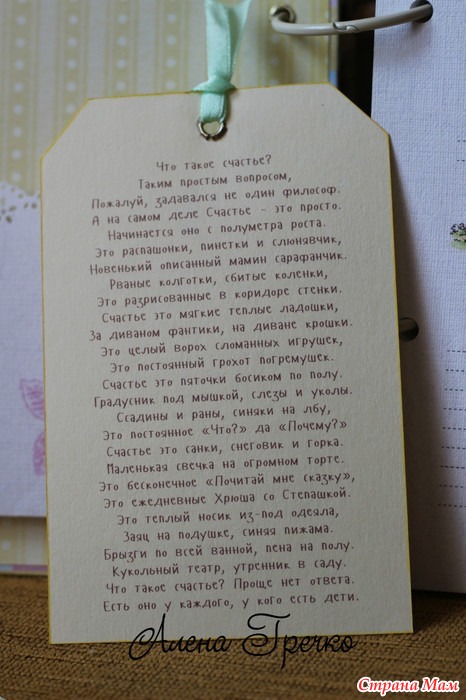 Что такое счастье?
Таким простым вопросом,
Пожалуй, задавался не один философ.
А на самом деле Счастье - это просто.
Начинается оно с полуметра роста.
Это распашонки, пинетки и слюнявчик,
Новенький описанный мамин сарафанчик.
Рваные колготки, сбитые коленки,
Это разрисованные в коридоре стенки.
Счастье это мягкие теплые ладошки,
За диваном фантики, на диване крошки.
Это целый ворох сломанных игрушек,
Это постоянный грохот погремушек.
Счастье это пяточки босиком по полу.
Градусник под мышкой, слезы и уколы.
Ссадины и раны, синяки на лбу,
Это постоянное «Что?» да «Почему?»
Счастье это санки, снеговик и горка.
Маленькая свечка на огромном торте.
Это бесконечное «Почитай мне сказку»,
Это ежедневные Хрюша со Степашкой.
Это теплый носик из-под одеяла,
Заяц на подушке, синяя пижама.
Брызги по всей ванной, пена на полу.
Кукольный театр, утренник в саду.
Что такое счастье? Проще нет ответа.
Есть оно у каждого, у кого есть дети.
Алена Гречко
Страна Мам